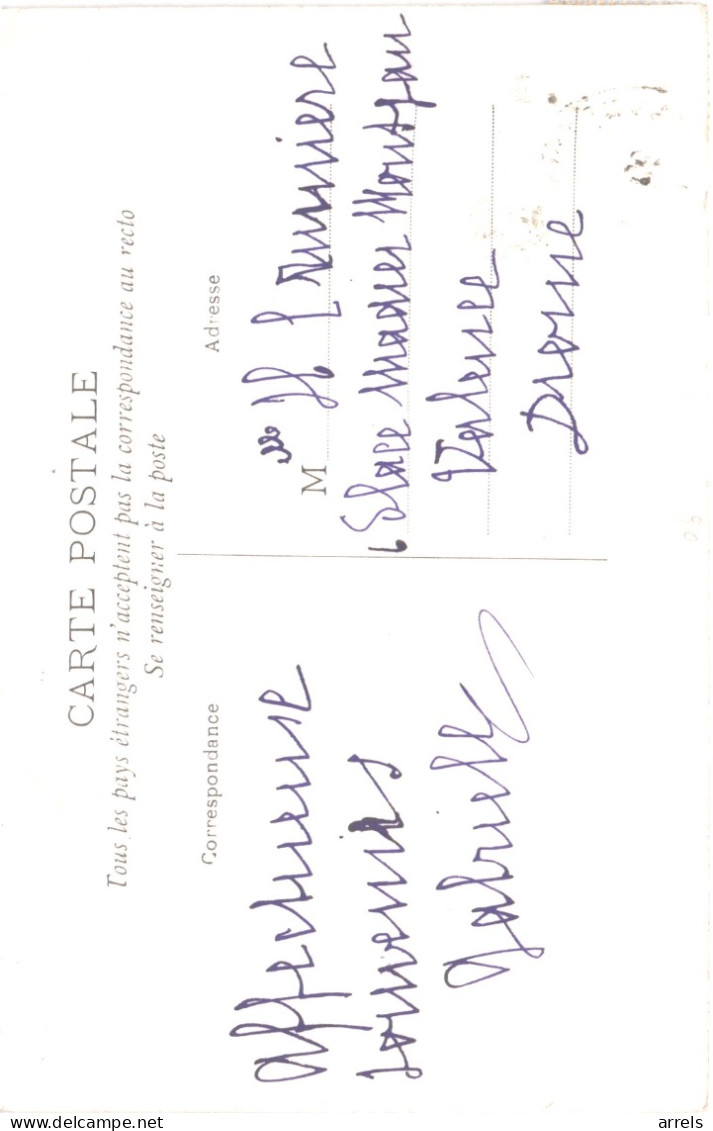 CARTE POSTALE
Tous les pays étrangers n'acceptent pas la correspondance au recto
Se renseigner à la poste
Correspondance
Affectueuse
souvenirs
Gabrielle
Adresse
M elle H
6 Place Madier Montjau
Valence
Drome
arrels
delcampe.net